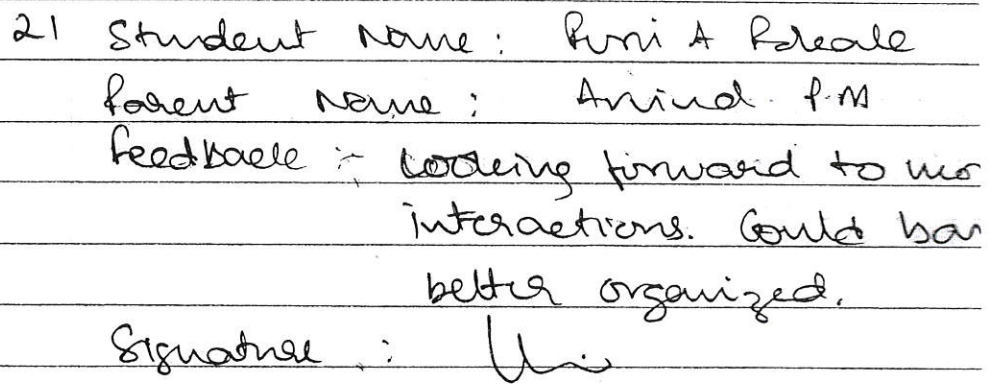 21 Student Name : A
Parent Name : Arvind P.M
Feedback :- Looking forward to mor
interactions. Could hav
better organized.
Signature :